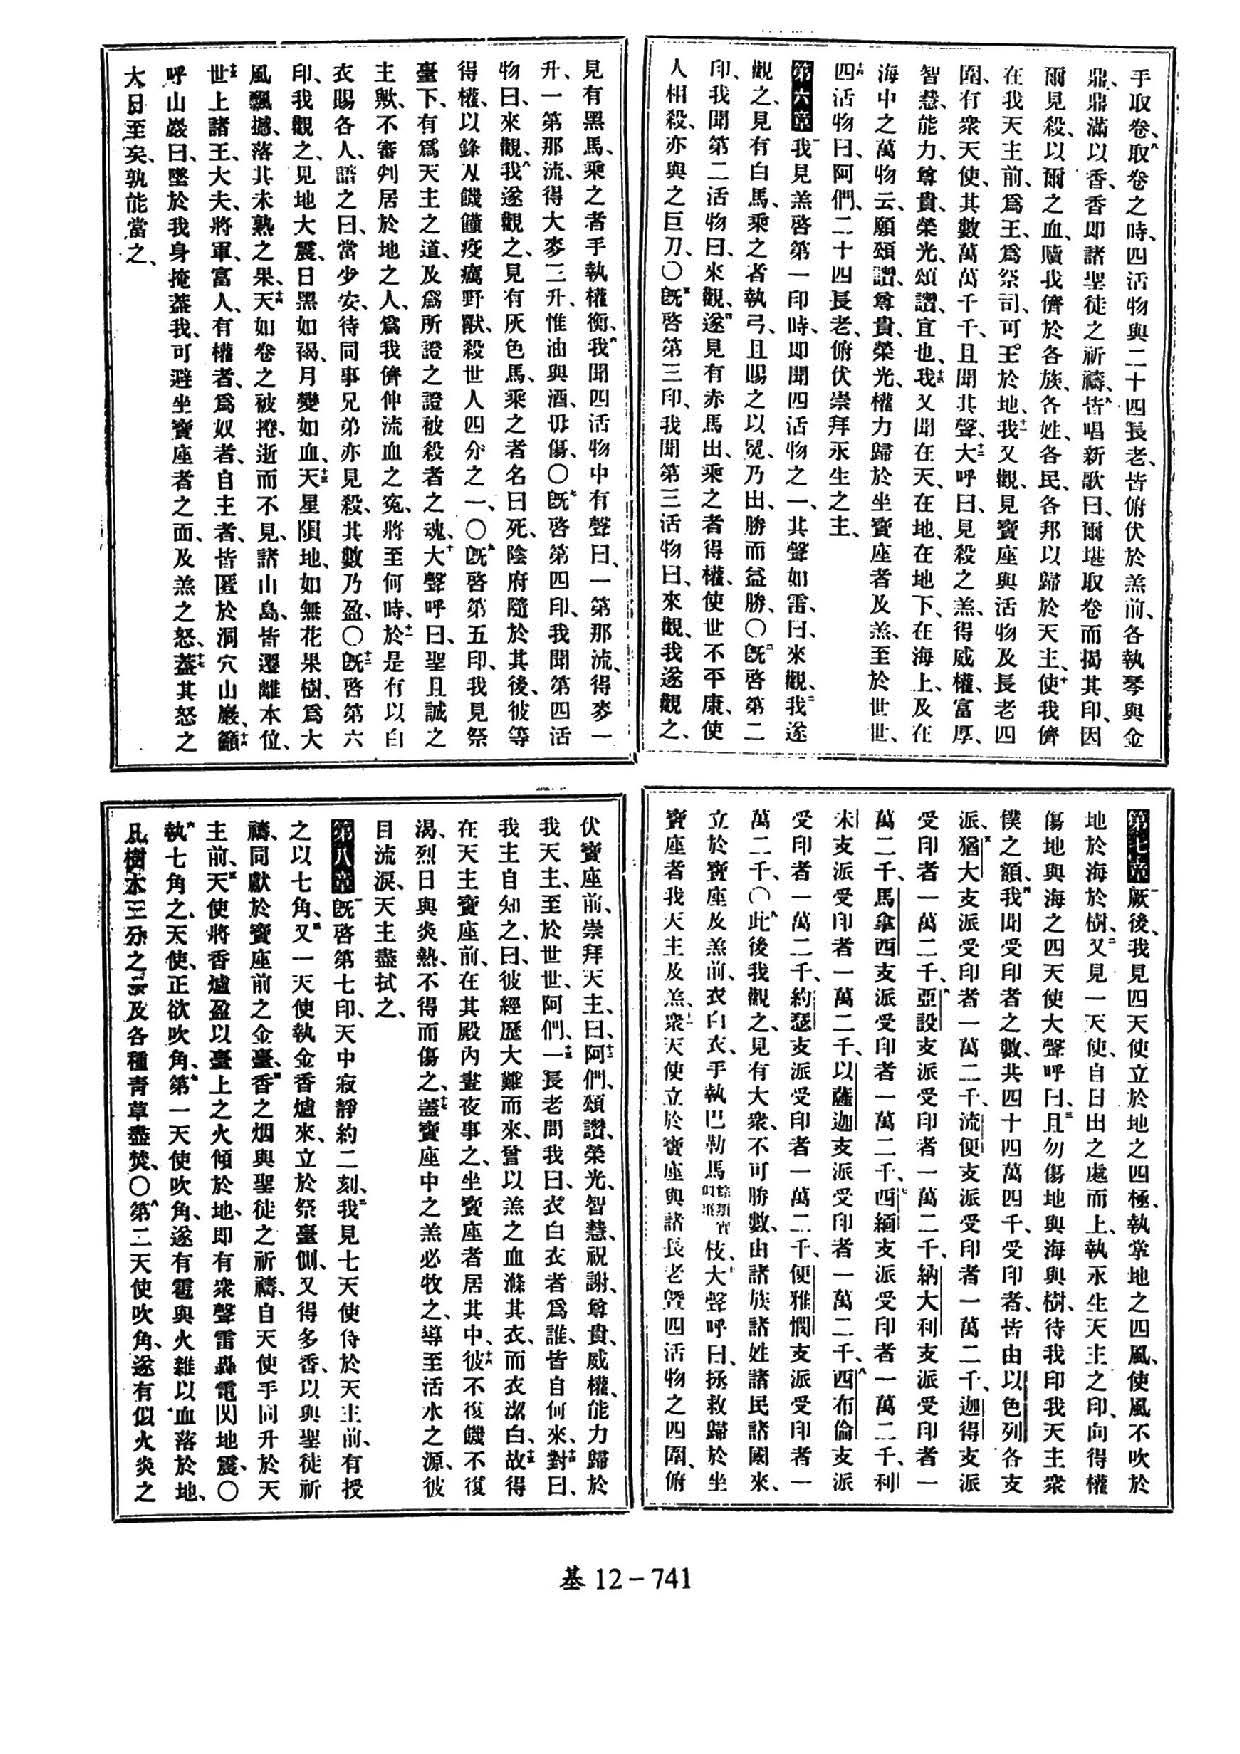 手取卷、取卷之時、四活物與二十四長老、皆俯伏於羔前、各執琴與金
鼎、鼎滿以香、香即諸聖徒之祈禱、皆唱新歌曰、爾堪取卷而揭其印、因
爾見殺、以爾之血、贖我儕於各族、各姓、各民、各邦、以歸於天主、使我儕
在我天主前、爲王、爲祭司、可王於地、我又觀、見寶座與活物及長老四
圍、有衆天使、其數萬萬千千、且聞其聲、大呼曰、見殺之羔、得威權、富厚、
智慧、能力、尊貴、榮光、頌讚、宜也、我又聞在天、在地、在地下、在海上、及在
海中之萬物云、願頌讚、尊貴、榮光、權力、歸於坐寶座者、及羔、至於世世、
四活物曰、阿們、二十四長老、俯伏崇拜永生之主、
第六章 我見羔啓第一印時、即聞四活物之一、其聲如雷、曰、來觀、我遂
觀之、見有白馬、乘之者執弓、且賜之以冕、乃出、勝而益勝、〇既啓第二
印、我聞第二活物曰、來觀、遂見有赤馬出、乘之者得權、使世不平康、使
人相殺、亦與之巨刀、〇既啓第三印、我聞第三活物曰、來觀、我遂觀之、
見有黑馬、乘之者手執權衡、我聞四活物中有聲曰、一第那流、得麥一
升、一第那流、得大麥三升、惟油與酒、毋傷、〇既啓第四印、我聞第四活
物曰、來觀、我遂觀之、見有灰色馬、乘之者名曰死、陰府隨於其後、彼等
得權、以鋒刃饑饉疫癘野獸、殺世人四分之一、〇既啓第五印、我見祭
臺下、有爲天主之道、及爲所證之證被殺者之魂、大聲呼曰、聖且誠之
主歟、不審判居於地之人、爲我儕伸流血之寃、將至何時、於是有以白
衣賜各人、語之曰、當少安、待同事兄弟亦見殺、其數乃盈、〇既啓第六
印、我觀之、見地大震、日黑如褐、月變如血、天星隕地、如無花果樹、爲大
風飄撼、落其未熟之果、天如卷之被捲、逝而不見、諸山島、皆遷離本位、
世上諸王、大夫、將軍、富人、有權者、爲奴者、自主者、皆匿於洞穴山巖、籲
呼山巖曰、墜於我身掩蓋我、可避坐寶座者之面、及羔之怒、蓋其怒之
大日至矣、孰能當之、
第七章 厥後、我見四天使立於地之四極、執掌地之四風、使風不吹於
地、於海、於樹、又見一天使、自日出之處而上、執永生天主之印、向得權
傷地與海之四天使大聲呼曰、且勿傷地與海與樹、待我印我天主衆
僕之額、我聞受印者之數、共四十四萬四千、受印者、皆由以色列各支
派、猶大支派受印者一萬二千、流便支派受印者一萬二千、迦得支派
受印者一萬二千、亞設支派受印者一萬二千、納大利支派受印者一
萬二千、馬拿西支派受印者一萬二千、西緬支派受印者一萬二千、利
未支派受印者一萬二千、以薩迦支派受印者一萬二千、西布倫支派
受印者一萬二千、約瑟支派受印者一萬二千、便雅憫支派受印者一
萬二千、〇此後我觀之、見有大衆、不可勝數、由諸族諸姓諸民諸國來、
立於寶座及羔前、衣白衣、手執巴勒馬枝、大聲呼曰、拯救歸於坐
寶座者我天主及羔、衆天使立於寶座與諸長老曁四活物之四圍、俯
伏寶座前、崇拜天主、曰、阿們、頌讚、榮光、智慧、祝謝、尊貴、威權、能力、歸於
我天主、至於世世、阿們、一長老問我曰、衣白衣者爲誰、皆自何來、對曰、
我主自知之、曰、彼經歷大難而來、曾以羔之血滌其衣、而衣潔白、故得
在天主寶座前、在其殿內晝夜事之、坐寶座者居其中、彼不復饑不復
渴、烈日與炎熱、不得而傷之、蓋寶座中之羔必牧之、導至活水之源、彼
目流淚、天主盡拭之、
第八章 既啓第七印、天中寂靜約二刻、我見七天使侍於天主前、有授
之以七角、又一天使執金香爐來、立於祭臺側、又得多香、以與聖徒祈
禱、同獻於寶座前之金臺、香之烟與聖徒之祈禱、自天使手同升於天
主前、天使將香爐盈以臺上之火傾於地、即有衆聲雷轟電閃地震、〇
執七角之天使、正欲吹角、第一天使吹角、遂有雹與火雜以血落於地、
凡樹木三分之一及各種青草盡焚、〇第二天使吹角、遂有似火炎之
基12－741